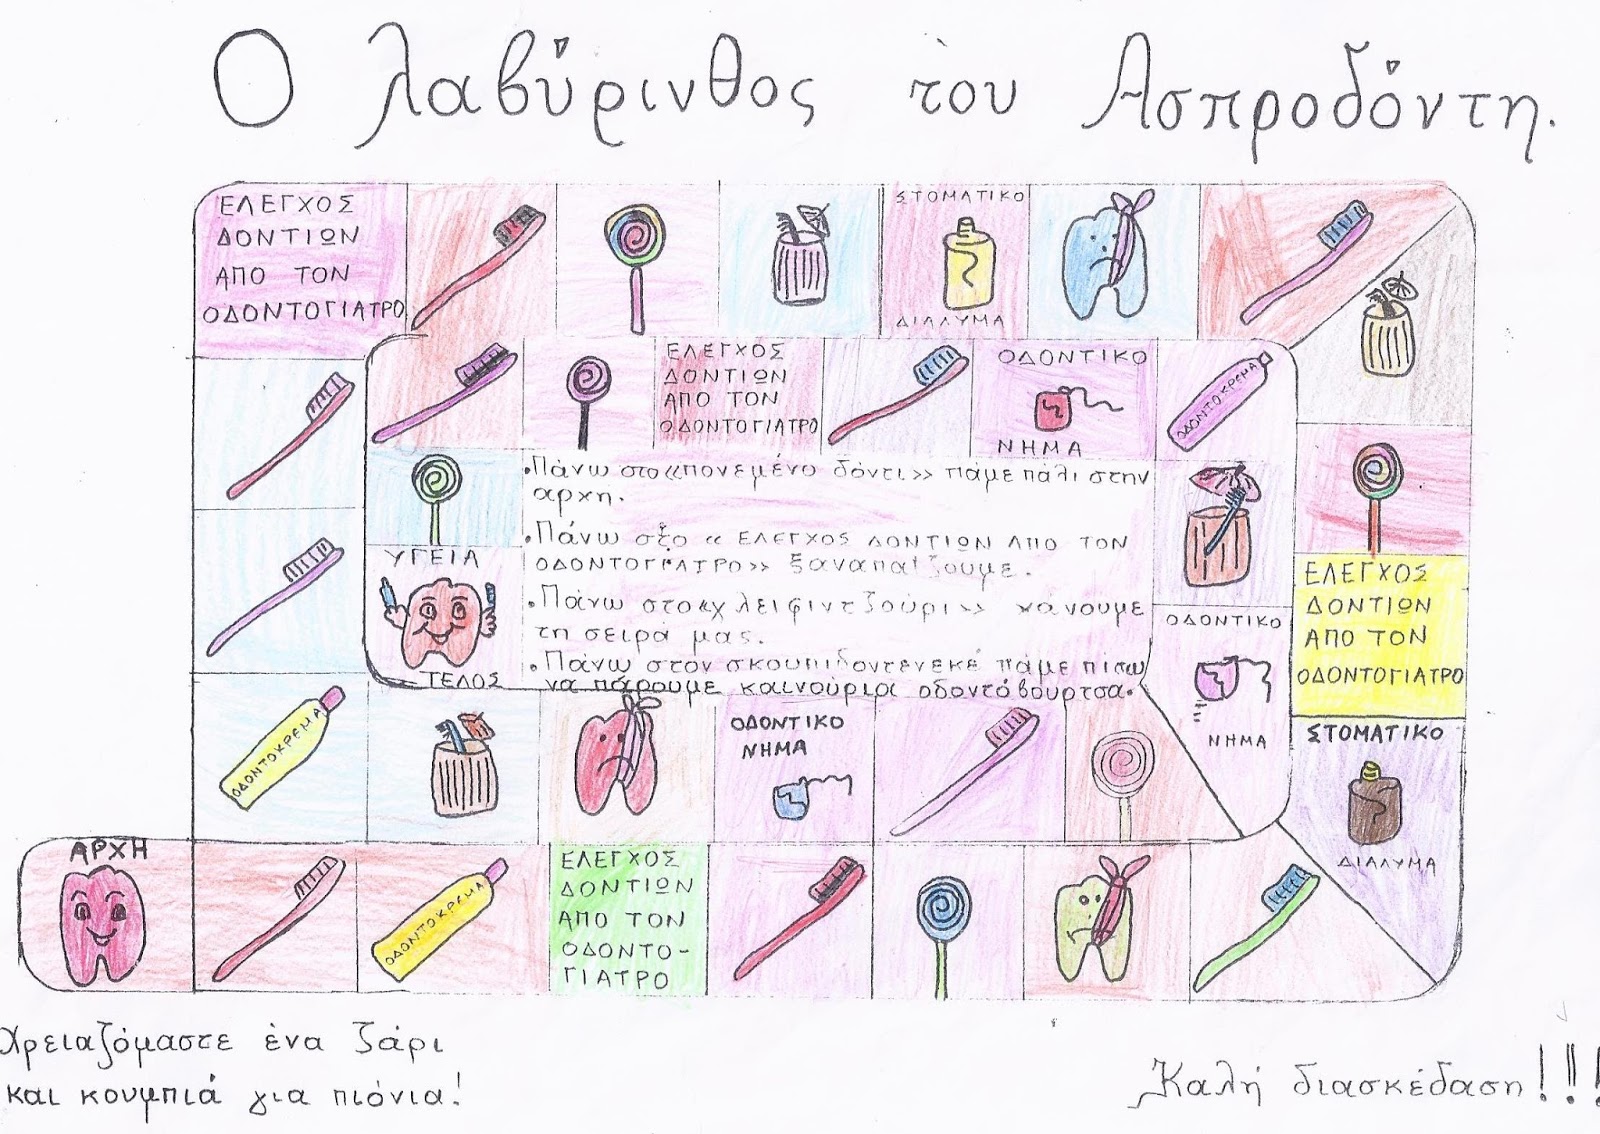 Ο λαβύρινθος του Ασπροδόντη.
ΕΛΕΓΧΟΣ
ΔΟΝΤΙΩΝ
ΑΠΟ ΤΟΝ
ΟΔΟΝΤΟΓΙΑΤΡΟ
ΣΤΟΜΑΤΙΚΟ
ΔΙΑΛΥΜΑ
ΕΛΕΓΧΟΣ
ΔΟΝΤΙΩΝ
ΑΠΟ ΤΟΝ
ΟΔΟΝΤΟΓΙΑΤΡΟ
ΟΔΟΝΤΙΚΟ
ΝΗΜΑ
ΟΔΟΝΤΟΚΡΕΜΑ
•Πάνω στο «πονεμένο δόντι» πάμε πάλι στην
αρχη.
•Πάνω στο « ΕΛΕΓΧΟΣ ΔΟΝΤΙΩΝ ΑΠΟ ΤΟΝ
ΟΔΟΝΤΟΓΙΑΤΡΟ» ξαναπαίζουμε.
•Πάνω στο «γλειφιντζούρι» χάνουμε
τη σειρά μας.
•Πάνω στον σκουπιδοντενεκέ πάμε πίσω
να πάρουμε καινούρια οδοντόβουρτσα.
ΥΓΕΙΑ
ΤΕΛΟΣ
ΟΔΟΝΤΙΚΟ
ΝΗΜΑ
ΕΛΕΓΧΟΣ
ΔΟΝΤΙΩΝ
ΑΠΟ ΤΟΝ
ΟΔΟΝΤΟΓΙΑΤΡΟ
ΟΔΟΝΤΟΚΡΕΜΑ
ΟΔΟΝΤΙΚΟ
ΝΗΜΑ
ΣΤΟΜΑΤΙΚΟ
ΔΙΑΛΥΜΑ
ΑΡΧΗ
ΟΔΟΝΤΟΚΡΕΜΑ
ΕΛΕΓΧΟΣ
ΔΟΝΤΙΩΝ
ΑΠΟ ΤΟΝ
ΟΔΟΝΤΟ-
ΓΙΑΤΡΟ
Χρειαζόμαστε ένα ζάρι
και κουμπιά για πιόνια!
Καλή διασκέδαση!!!